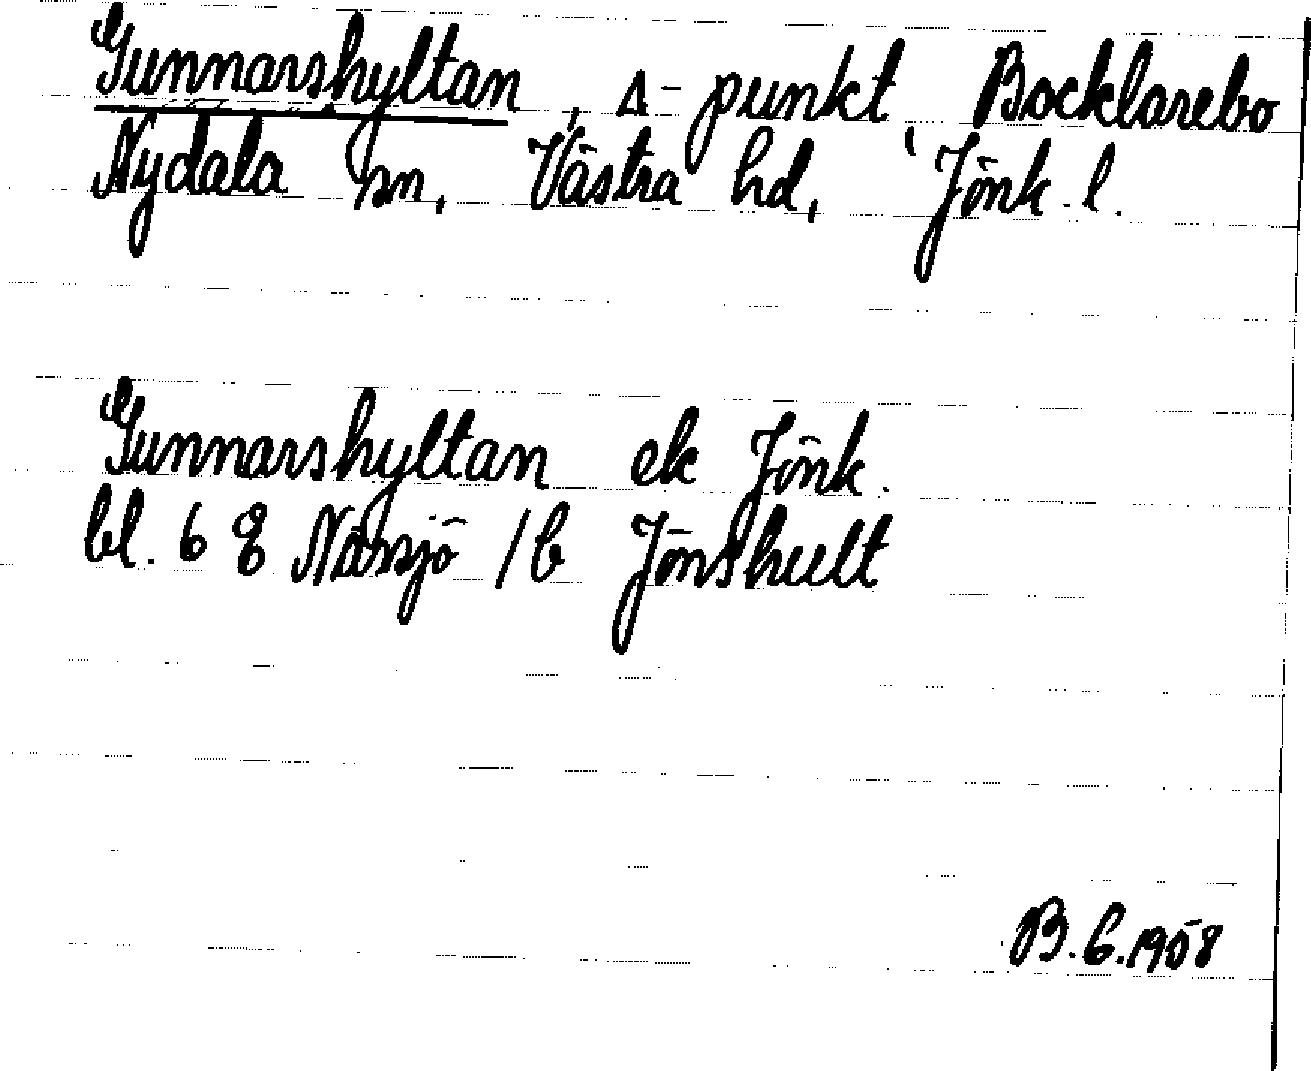 Gunnarshyltan, Δ-punkt, Bocklarebo
Nydala sn, Västra hd, Jönk. l.
Gunnarshyltan ek Jönk.
bl. 6 8 Nässjö /b Jönshult
B.G.1958